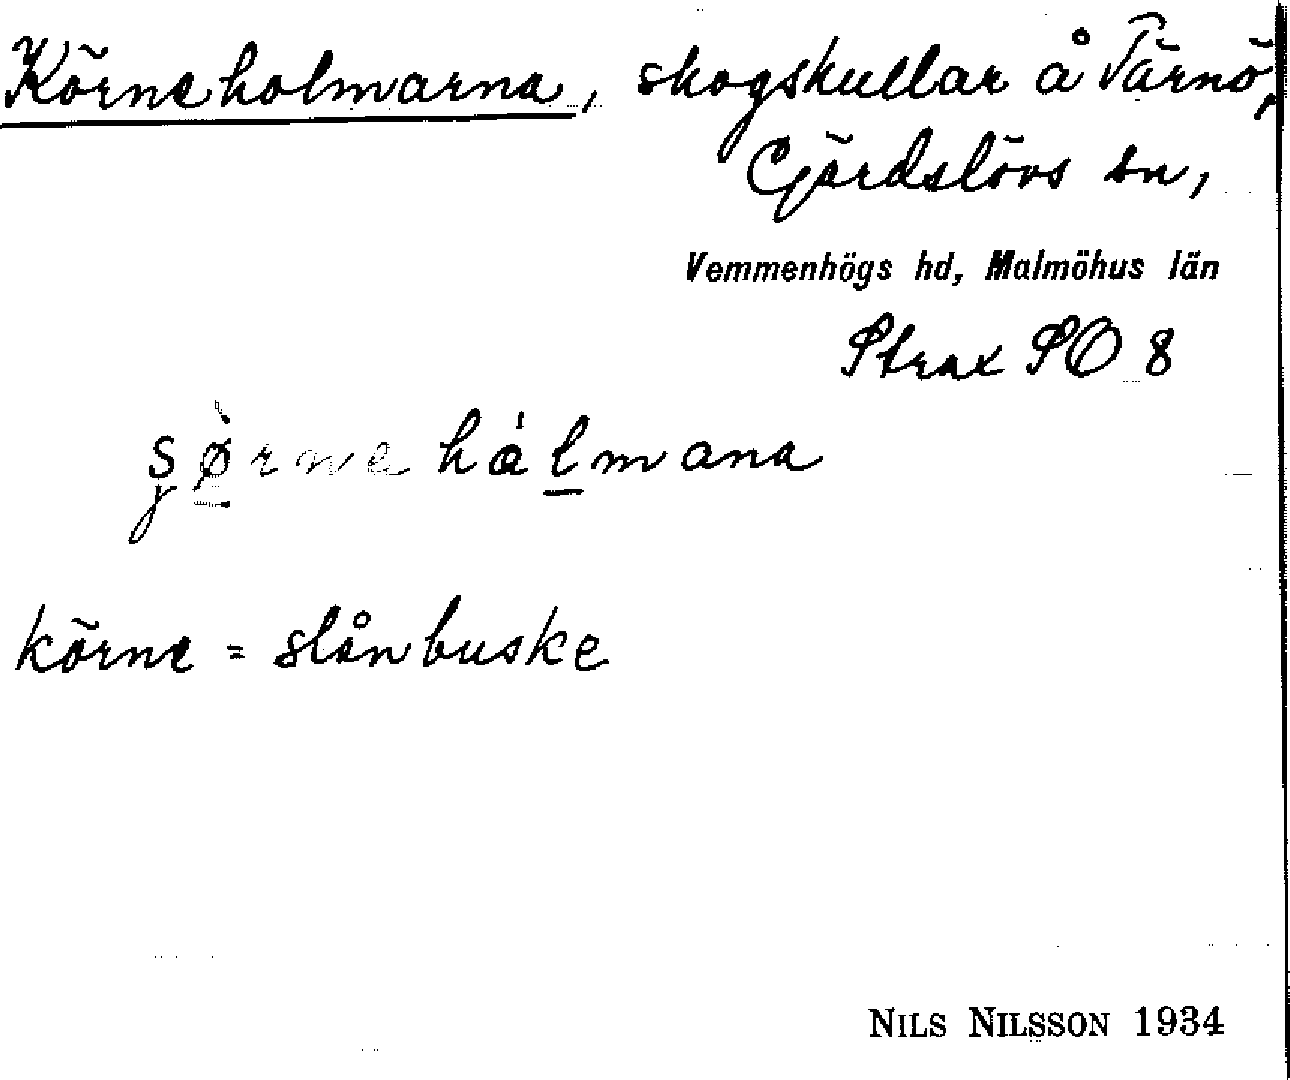 Körneholmarna, skogskullar å Tärnö,
Gärdslövs sn,
Vemmenhögs hd, Malmöhus län
Strax SO 8
körne = slånbuske
NILS NILSSON 1934